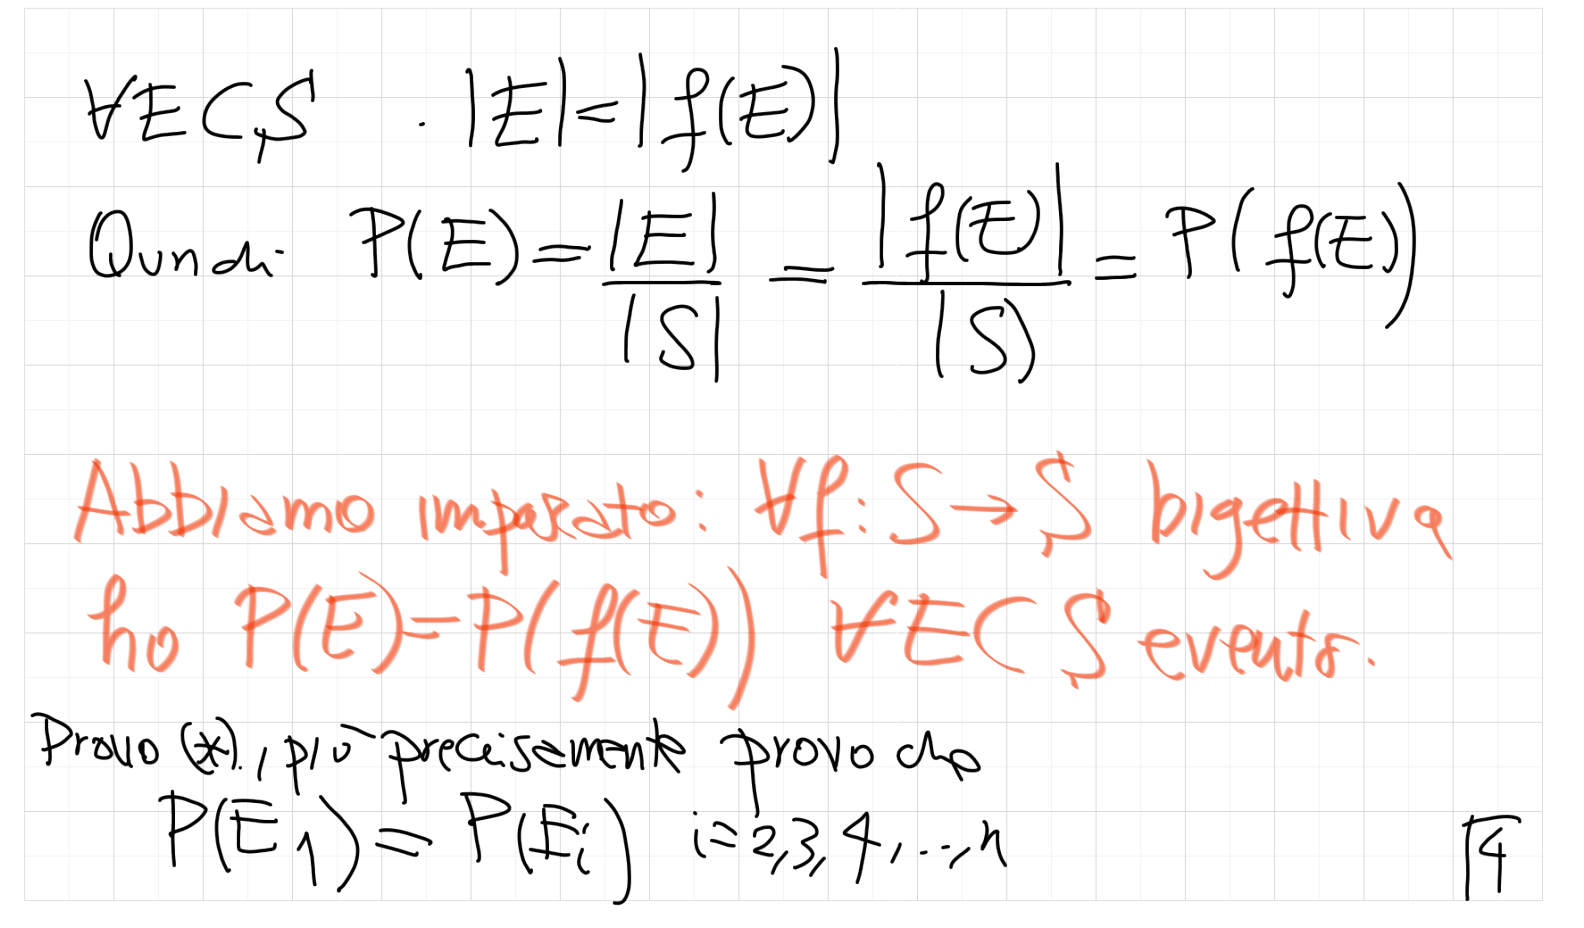 ∀E⊂S . |E|=|f(E)|
Quindi P(E)=|E|/|S| = |f(E)|/|S| = P(f(E))
Abbiamo imparato: ∀f: S→S bigettiva
ho P(E)=P(f(E)) ∀E⊂S evento.
Provo (*), più precisamente provo che
P(E₁)=P(Eᵢ) i=2,3,4,...,n
4